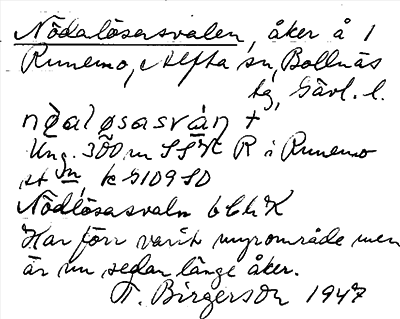 Nödalösasvalen, åker å 1
Runemo, Alfta sn, Bollnäs
tg, Gävl. l.
nø̀aløsasván +
Ung. 300 m SSV R i Runemo
st jn, k G109 SD
Nödlösasvaln bbhK
Har förr varit myrområde men
är nu sedan länge åker.
T. Birgerson 1947